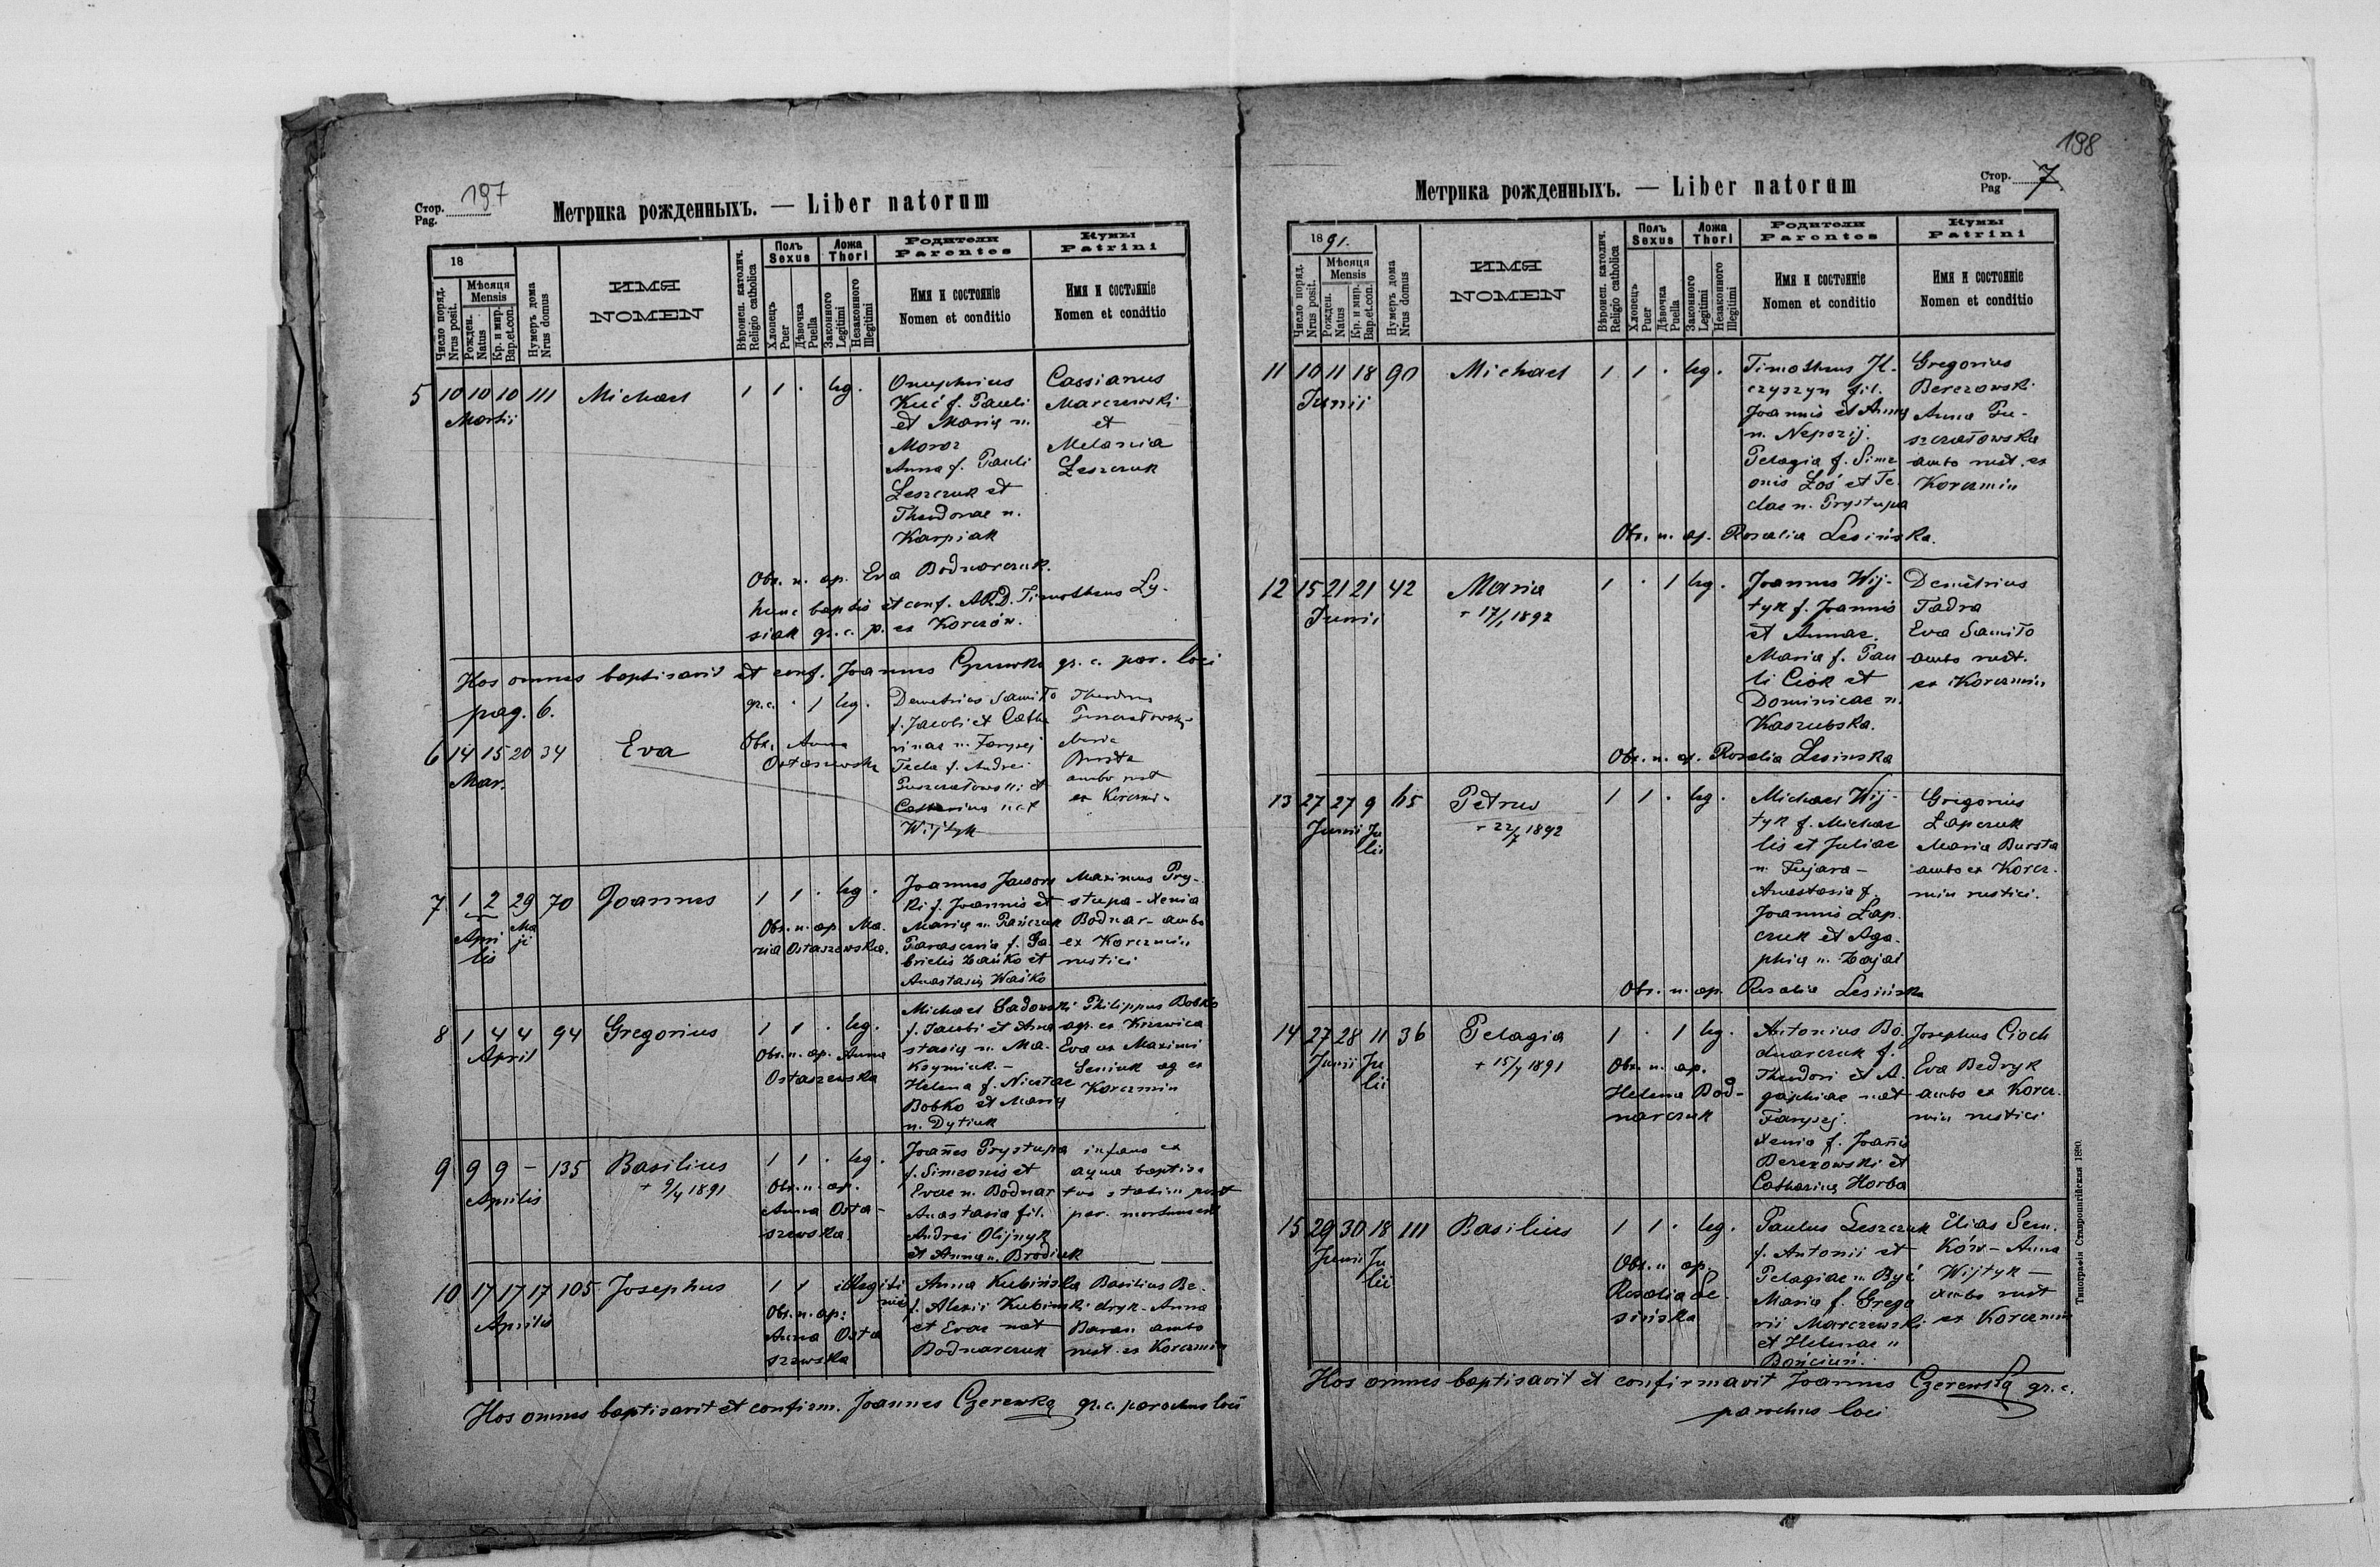 Стор. Pag. 197
Метрика рожденныхъ. — Liber natorum
18
Число поряд. Nrus posit.
Мѣсяця Mensis
Рожден. Natus
Кр. и мир. Bap.et.con.
Нумеръ дома Nrus domus
ИМЯ
NOMEN
Вѣроисп. католич. Religio catholica
Полъ Sexus
Хлопець Puer
Дѣвочка Puella
Ложа Thori
Законного Legitimi
Незаконного Illegitimi
Родители
Parentes
Имя и состояніе
Nomen et conditio
Кумы
Patrini
Имя и состояніе
Nomen et conditio
5 10 10 10 111 Michael 1 1 . leg.
Martii
Onuphrius
Kuć f. Pauli
et Marię n.
Moroz
Anna f. Pauli
Leszczuk et
Theodorae n.
Karpiak
Cassianus
Marczewski
et
Melania
Leszczuk
Obs. n. ap. Eva Bodnarczuk.
hunc baptis et conf. A.R.D. Timotheus Ly-
siak gr. c. p. ex Korczów.
Hos omnes baptisavit et conf. Joannes Czerewko gr. c. par. loci
pag. 6.
6 14 15 20 34 Eva gr.c. . 1 leg.
Mar.
Obs. Anna
Ostaszewska
Demetrius Samiło
f. Jacobi et Catha
rinae n. Farysej
Tecla f. Andrei
Puszczałowski et
Catharina nat
Wijtyk
Maria
Bursta
ambo rust
ex Korczmin
7 1 2 29 70 Joannes 1 1 . leg.
Apri
lis
Ma
ji
Obs. n. ap. Ma.
ria Ostaszewska.
Joannes Jawors
ki f. Joannis et
Marię n. Pańczuk
Parascevia f. Ga-
brielis Łańko et
Anastasię Waśko
Maximus Pry-
stupa - Xenia
Bodnar - ambo
ex Korczmin
rustici
8 1 4 4 94 Gregorius 1 1 . leg.
April
Obs. n. ap. Anna
Ostaszewska
Michael Sadowski
f. Jacobi et Ana
stasię n. Ma.
Ksymiuk. -
Helena f. Nicetae
Bobko et Marię
n. Dytiuk
Philippus Bobko
agr. ex Krzewica
Eva ux Maximi
Seniuk ag ex
Korczmin
9 9 9 - 135 Basilius 1 1 . leg.
Aprilis
+ 9/4 1891
Obs. n. ap.
Anna Osta-
szewska.
Joañes Prystupa
f. Simeonis et
Evae n. Bodnar
Anastasia fil.
Andrei Olijnyk
et Anna n. Brodiuk
infans ex
aqua baptisa
tus statim post
par. mortuus est
10 17 17 17 105 Josephus 1 1 illegiti
mi
Aprilis
Obs. n. ap:
Anna Osta
szewska
Anna Kubińska
f. Alexii Kubinski
et Evae nat
Bodnarczuk
Basilius Be-
dryk - Anna
Baran ambo
rust. ex Korczmin
Hos omnes baptisavit et confirm. Joannes Czerewko gr. c. parochus loci
198
Метрика рожденныхъ. — Liber natorum
Стор. Pag 7
1891.
Число поряд. Nrus posit.
Мѣсяця Mensis
Рожден. Natus
Кр. и мир. Bap.et.con.
Нумеръ дома Nrus domus
ИМЯ
NOMEN
Вѣроисп. католич. Religio catholica
Полъ Sexus
Хлопець Puer
Дѣвочка Puella
Ложа Thori
Законного Legitimi
Незаконного Illegitimi
Родители
Parentes
Имя и состояніе
Nomen et conditio
Кумы
Patrini
Имя и состояніе
Nomen et conditio
11 10 11 18 90 Michael 1 1 . leg.
Junii
Timotheus Il-
czyszyn fil.
Joannis et Annę
n. Nepozij.
Pelagia f. Sime
onis Łoś et Te-
clae n. Prystupa
Gregorius
Berezowski
Anna Pu-
szczałowska
ambo rust. ex
Korczmin
Obs. n. ap. Rosalia Lesińska.
12 15 21 21 42 Maria 1 . 1 leg.
Junii
+ 17/1 1892
Joannes Wij-
tyk f. Joannis
et Annae.
Maria f. Pau
li Ciok et
Dominicae n.
Kaszubska.
Demetrius
Fadra
Eva Samiło
ambo rust.
ex Korczmin
Obs. n. ap. Rosalia Lesinska
13 27 27 9 65 Petrus 1 1 . leg.
Junii Ju
lii
+ 22/7 1892
Michael Wij-
tyk f. Michae
lis et Juliae
n. Fujara -
Anastasia f.
Joannis Łap.
czuk et Aga-
phię n. Zajac
Gregorius
Łapczuk
Maria Bursta
ambo ex Korcz.
min rustici.
Obs. n. ap. Rosalia Lesińska
14 27 28 11 36 Pelagia 1 . 1 leg.
Junii Ju
lii
+ 15/7 1891
Obs. n. ap.
Helena Bod-
narczuk
Antonius Bo.
dnarczuk f.
Theodori et A.
gaphiae nat
Farysej.
Xenia f. Joañis
Berezowski et
Catharinę Horba
Josephus Cioch
Eva Bedryk
ambo ex Korcz.
min rustici
15 29 30 18 111 Basilius 1 1 . leg.
Junii Ju
lii
Obs. n. ap.
Rosalia Le-
sińska
Paulus Leszczuk
f. Antonii et
Pelagiae n. Być
Maria f. Grego
rii Marczewski
et Helenae n
Bońciuń.
Elias Sem.
Ków - Anna
Wijtyk —
ambo rust
ex Korczmin
Hos omnes baptisavit et confirmavit Joannes Czerewko gr. c.
parochus loci
Типографія Ставропигійская 1890.